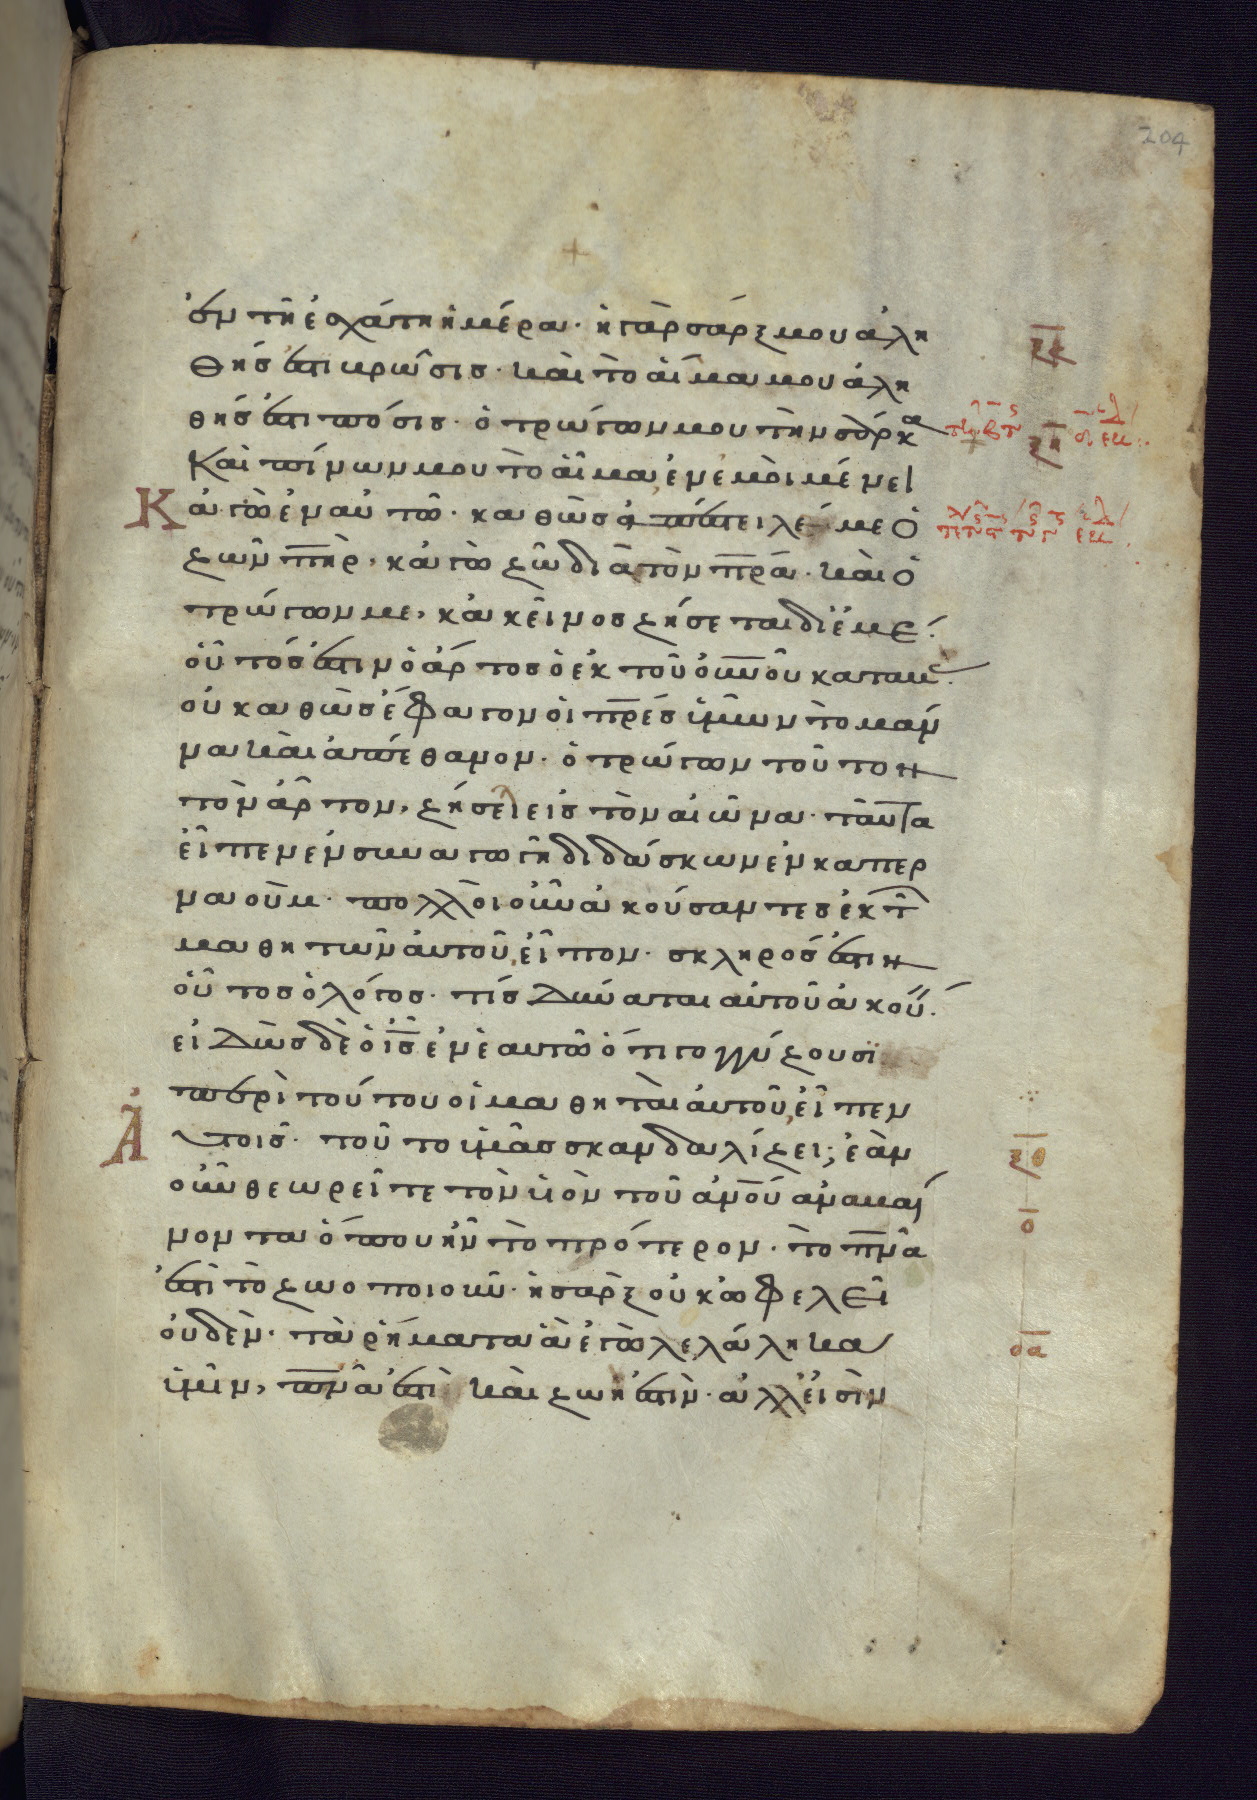 204
ἐν τῇ ἐσχάτη ἡμέρα· ἡ γὰρ σάρξ μου ἀλη
θής ἐστι βρῶσις· καὶ τὸ αἷμα μου ἀλη
θής ἐστι πόσις· ὁ τρώγων μου τὴν σάρκα
καὶ πίνων μου τὸ αἷμα, ἐν ἐμοὶ μένει
κἀγὼ ἐν αὐτῶ· καθὼς ἀπέστειλέ με ὁ
ζῶν πηρ, κἀγὼ ζῶ διὰ τὸν πρα· καὶ ὁ
τρώγων με, κἀκεῖνος ζήσεται δι ἐμέ·
οὗτός ἐστιν ὁ ἄρτος ὁ ἐκ τοῦ οὐνοῦ καταβάς·
οὐ καθὼς ἔφαγον οἱ πρες ὑμῶν τὸ μάν
να καὶ ἀπέθανον· ὁ τρώγων τοῦτον
τὸν ἄρτον, ζήσει εἰς τὸν αἰῶνα· ταῦτα
εἶπεν ἐν συναγωγῆ διδάσκων ἐν καπερ
ναούμ· πολλοὶ οὖν ἀκούσαντες ἐκ τῶν
μαθητῶν αὐτοῦ, εἶπον· σκληρός ἐστιν
οὗτος ὁ λόγος· τίς δύναται αὐτοῦ ἀκούειν·
εἰδὼς δὲ ὁ ις ἐν ἑαυτῶ ὅτι γογγύζουσι
περὶ τούτου οἱ μαθηταὶ αὐτοῦ, εἶπεν
αὐτοῖς· τοῦτο ὑμᾶς σκανδαλίζει; ἐὰν
οὖν θεωρεῖτε τὸν υἱὸν τοῦ ἀνου ἀναβαί
νοντα ὅπου ἦν τὸ πρότερον· τὸ πνα
ἐστὶ τὸ ζωοποιοῦν· ἡ σὰρξ οὐκ ὠφελεῖ
οὐδέν· τὰ ῥήματα ἃ ἐγὼ λελάληκα
ὑμῖν, πνα ἐστὶ καὶ ζωή ἐστιν· ἀλλ εἰσὶν
ξζ
ξη
ξθ
ο
οα